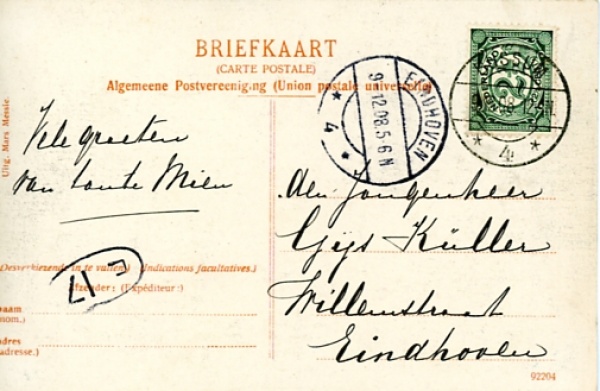 BRIEFKAART
(CARTE POSTALE)
Algemeene Postvereeniging (Union postale universelle)
Uitg. Mars Messie.
EINDHOVEN
9.12.08.5-6 N
4
4
Vele groeten
van tante Mien
den Jongenheer
Gijs Küller
Willemstraat
Eindhoven
(Desverkiezende in te vullen) (Indications facultatives.)
Afzender: (Expéditeur:)
17
naam
(nom.)
adres
(adresse.)
92204